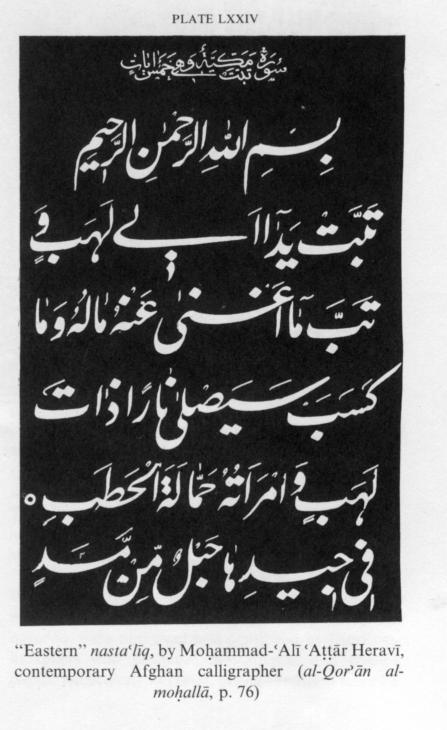 PLATE LXXIV
سورة تبت مكية وهي خمس ايات
بِسْمِ اللهِ الرَّحْمٰنِ الرَّحِيمِ
تَبَّتْ يَدَآ اَبِي لَهَبٍ وَّ
تَبَّ مَآ اَغْنىٰ عَنْهُ مَالُهُ وَمَا
كَسَبَ سَيَصْلىٰ نَارًا ذَاتَ
لَهَبٍ وَّامْرَاَتُهُ حَمَّالَةَ الْحَطَبِ ○
فِي جِيدِهَا حَبْلٌ مِّنْ مَّسَدٍ
“Eastern” nastaʿlīq, by Moḥammad-ʿAlī ʿAṭṭār Heravī,
contemporary Afghan calligrapher (al-Qorʾān al-
moḥallā, p. 76)